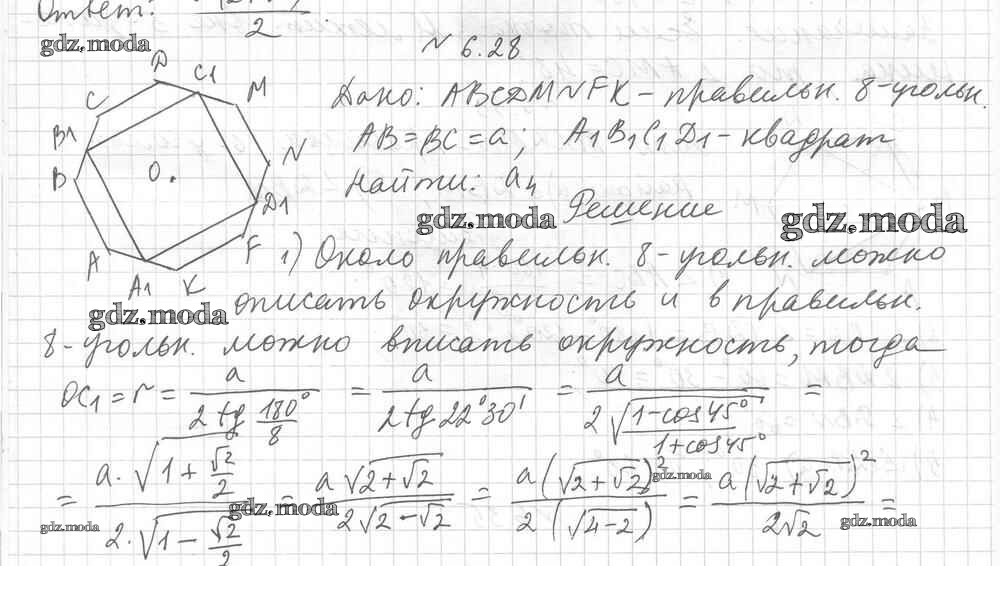 Ответ:
2
gdz.moda
N 6.28
D C1 M
C
B1
B
O.
N
D1
F
A
A1 K
Дано: ABCDMNFK – правильн. 8-угольн.
AB=BC=a; A1B1C1D1 – квадрат
Найти: a4
gdz.moda Решение gdz.moda
1) Около правильн. 8-угольн. можно
gdz.moda описать окружность и в правильн.
8-угольн. можно вписать окружность, тогда
OC1 = r = a / (2 tg 180°/8) = a / (2 tg 22°30') = a / (2 √((1-cos 45°)/(1+cos 45°))) =
= (a · √(1 + √2/2)) / (2 · √(1 - √2/2)) = (a √(2+√2)) / (2 √(2-√2)) = (a (√(2+√2))²) / (2 (√(4-2))) = (a (√(2+√2))²) / (2√2) =
gdz.moda gdz.moda gdz.moda gdz.moda